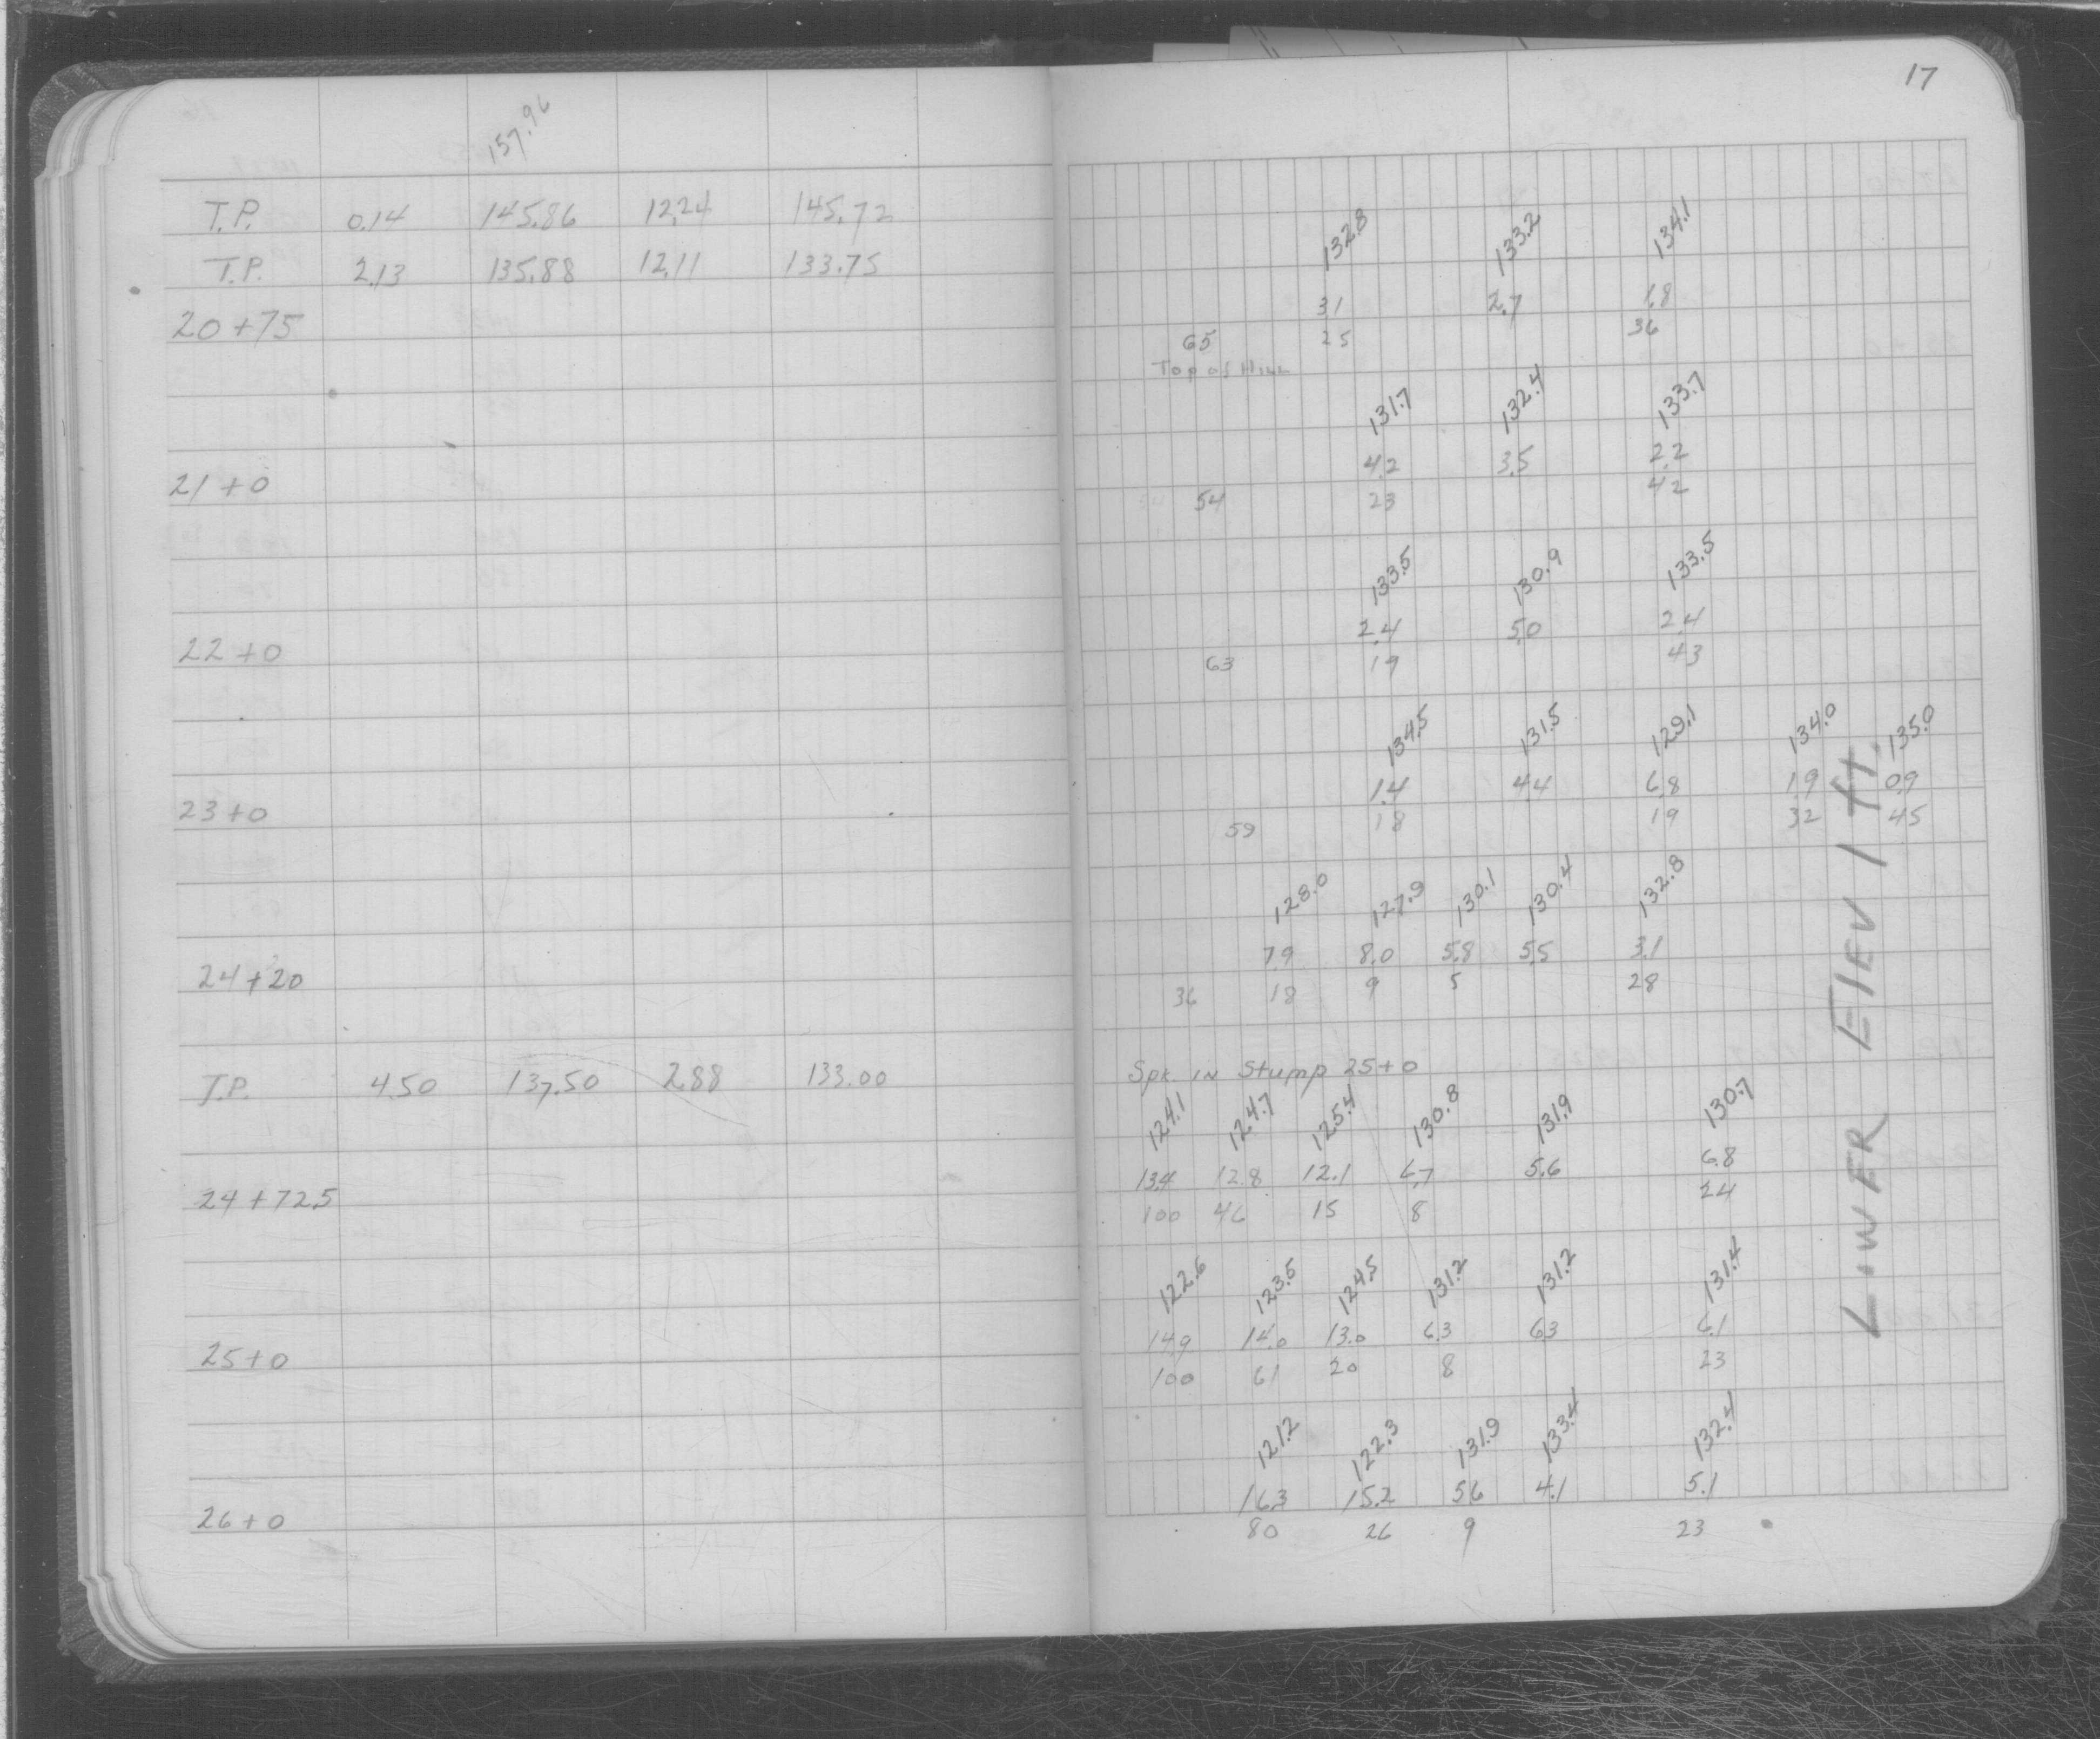 17
157.96
T.P. 0.14 145.86 12.24 145.72
132.8 133.2 134.1
T.P. 2.13 135.88 12.11 133.75
3.1 2.7 1.8
20+75 65 25 36
Top of Hill
131.7 132.4 133.7
4.2 3.5 2.2
21+0 54 23 42
133.5 130.9 133.5
2.4 5.0 2.4
22+0 63 19 43
134.5 131.5 129.1 134.0 135.0
1.4 4.4 6.8 1.9 0.9
23+0 59 18 19 32 45
128.0 127.9 130.1 130.4 132.8
7.9 8.0 5.8 5.5 3.1
24+20 36 18 9 5 28
T.P. 4.50 137.50 2.88 133.00 Spk. in Stump 25+0
124.1 124.7 125.4 130.8 131.9 130.7
13.4 12.8 12.1 6.7 5.6 6.8
24+72.5 100 46 15 8 24
122.6 123.5 124.5 131.2 131.2 131.4
14.9 14.0 13.0 6.3 6.3 6.1
25+0 100 61 20 8 23
121.2 122.3 131.9 133.4 132.4
16.3 15.2 5.6 4.1 5.1
26+0 80 26 9 23
LOWER ElEV 1 ft.